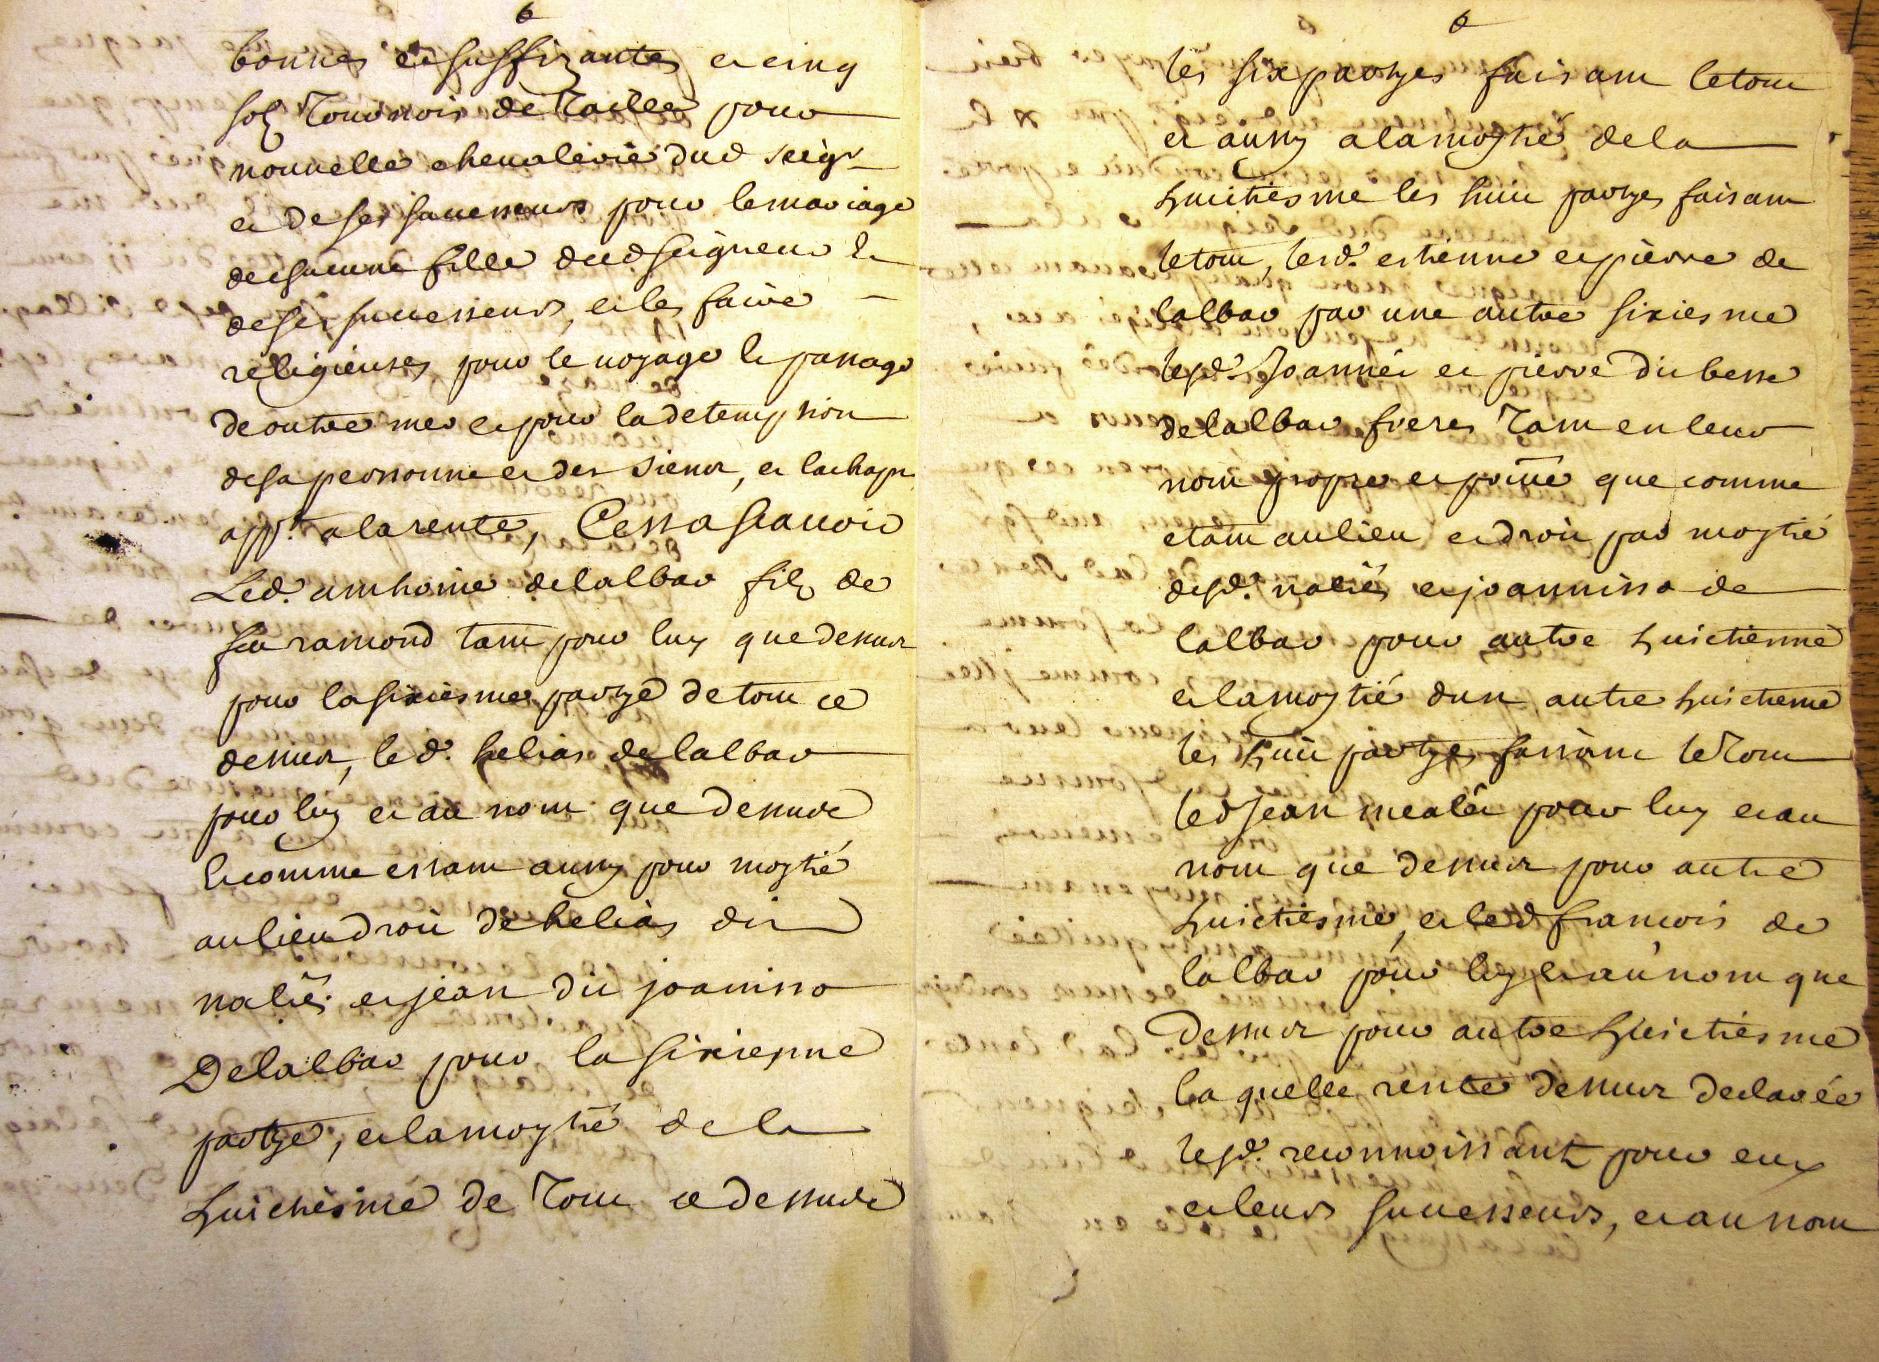 6
bonnes et suffizantes et cinq
solz tournois de tailles pour
nouvelle chevalerie dud seigr
et de ses sucesseurs pour le mariage
de chacune fille dud seigneur &
de ses sucesseurs, et les faire
religieuses pour le voyage le passage
de outre mer et pour la detemption
de sa personne et des siens, et lachapt
appt a la rente, Cest a scavoir
Led. anthoine delalbar filz de
feu ramond tant pour luy que dessus
pour la sixiesme partye de tout ce
dessus, led. helias delalbar
pour luy et au nom que dessus
& comme estant aussy pour moytié
au lieu droit de helias dit
naliés et jean dit joanisso
Delalbar pour la sixiesme
partye, et la moytié de la
huictiesme de tout ce dessus
6
les six partyes faisant le tout
et aussy a la moytié de la
huictiesme les huit partyes faisant
le tout, lesd. estienne et pierre de
lalbar par une autre sixiesme
lesd. Joannés et pierre dit besse
delalbar freres tant en leur
nom propre et privé que comme
estant au lieu et droit par moytié
desd. naliés et joannisso de
lalbar pour autre huictiesme
et la moytié dun autre huictieme
les huit partyes faisant le tout
led Jean mealet pour luy et au
nom que dessus pour autre
huictiesme, et led francois de
lalbar pour luy et au nom que
dessus pour autre huictiesme
la quelle rente dessus declarée
lesd. reconnoissantz pour eux
et leurs successeurs, et au nom